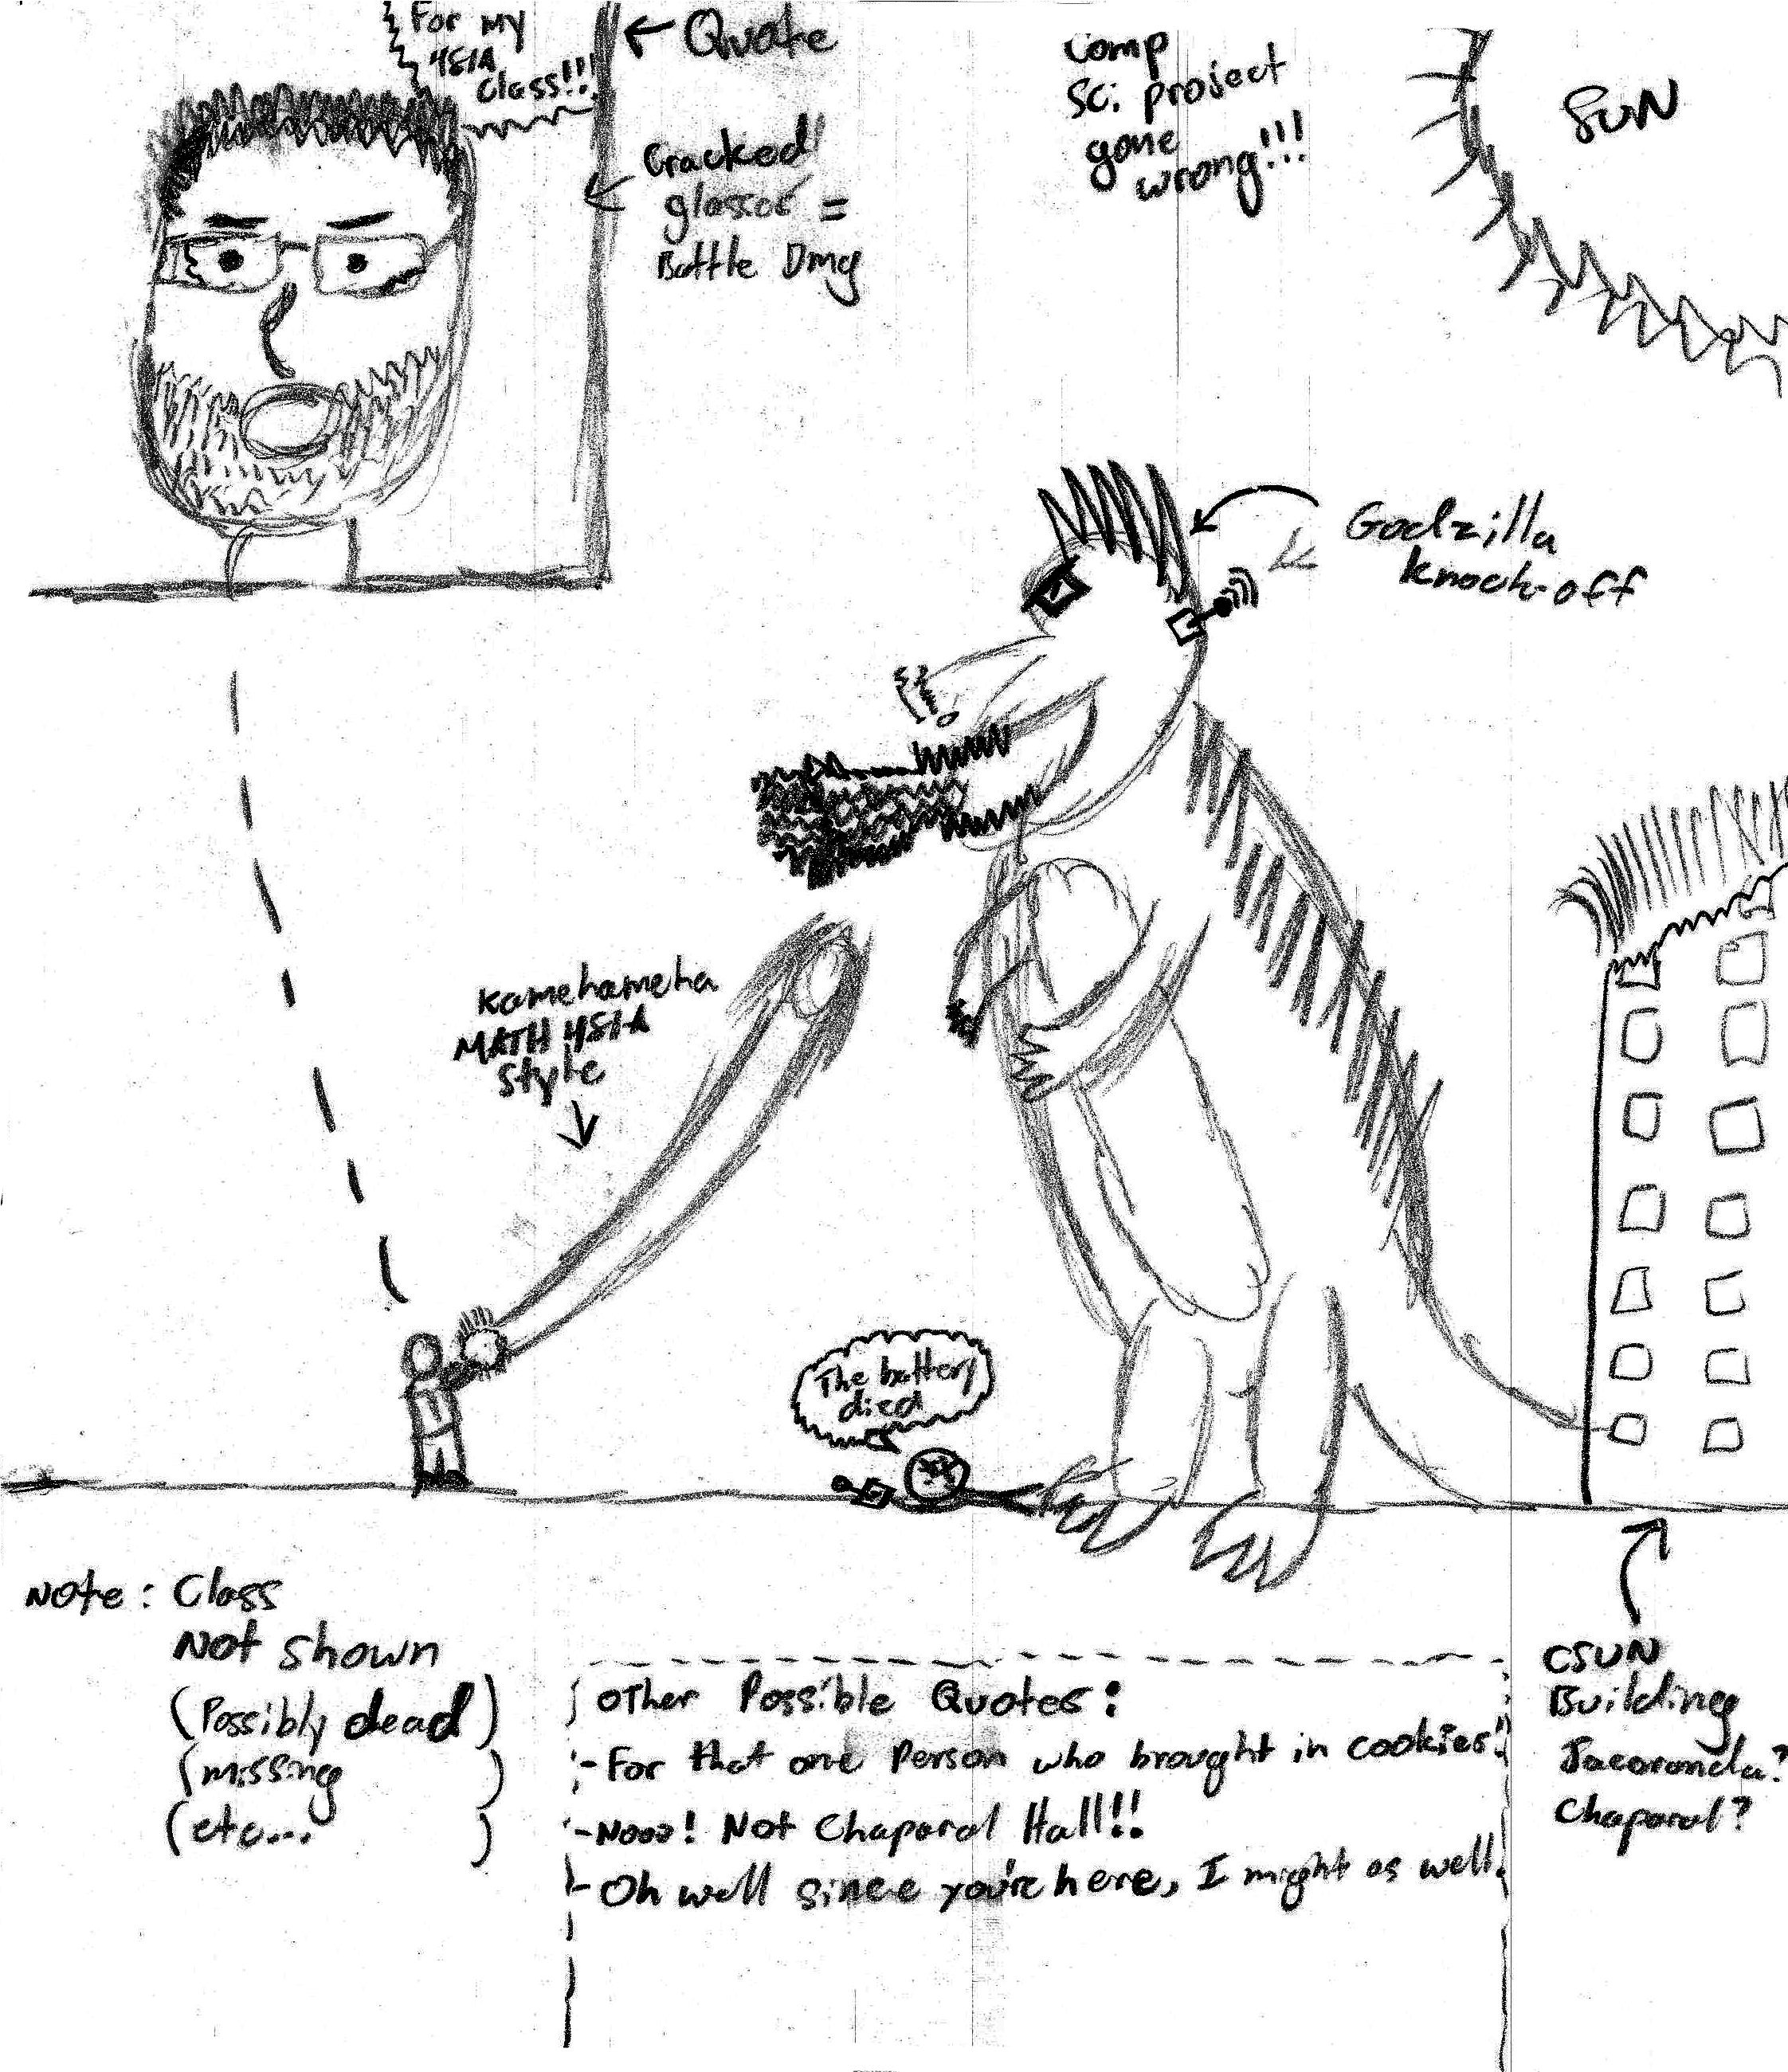 For my
481A
class!!!
← Quote
Cracked
glasses =
Battle Dmg
Comp
Sci project
gone
wrong!!!
SUN
Godzilla
knock-off
Kamehameha
MATH 481A
Style
The battery
died
Note: Class
Not shown
(Possibly dead)
(missing )
(etc... )
Other Possible Quotes:
- For that one Person who brought in cookies!
- Nooo! Not Chaparal Hall!!
- Oh well since you're here, I might as well.
CSUN
Building
Jacaranda?
Chaparal?